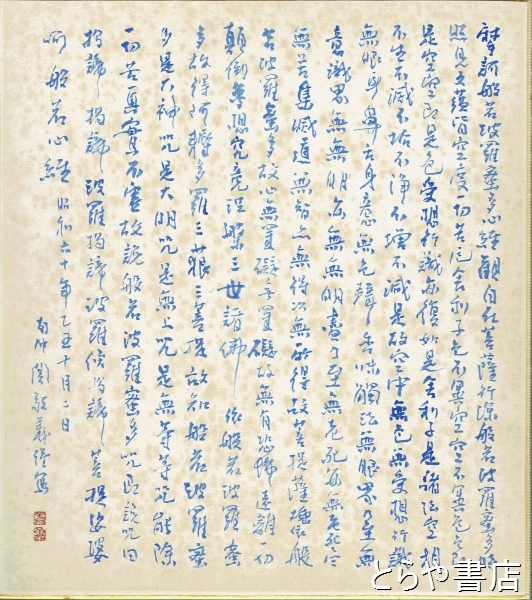 摩訶般若波羅蜜多心経観自在菩薩行深般若波羅蜜多時
照見五蘊皆空度一切苦厄舎利子色不異空空不異色色即
是空空即是色受想行識亦復如是舎利子是諸法空相
不生不滅不垢不浄不増不減是故空中無色無受想行識
無眼耳鼻舌身意無色声香味触法無眼界乃至無
意識界無無明亦無無明尽乃至無老死亦無老死尽
無苦集滅道無智亦無得以無所得故菩提薩埵依般
若波羅蜜多故心無罣礙無罣礙故無有恐怖遠離一切
顛倒夢想究竟涅槃三世諸仏依般若波羅蜜
多故得阿耨多羅三藐三菩提故知般若波羅蜜
多是大神呪是大明呪是無上呪是無等等呪能除
一切苦真実不虚故説般若波羅蜜多呪即説呪曰
掲諦掲諦波羅掲諦波羅僧掲諦菩提薩婆
訶般若心経 昭和六十年乙丑十月二日
とらや書店